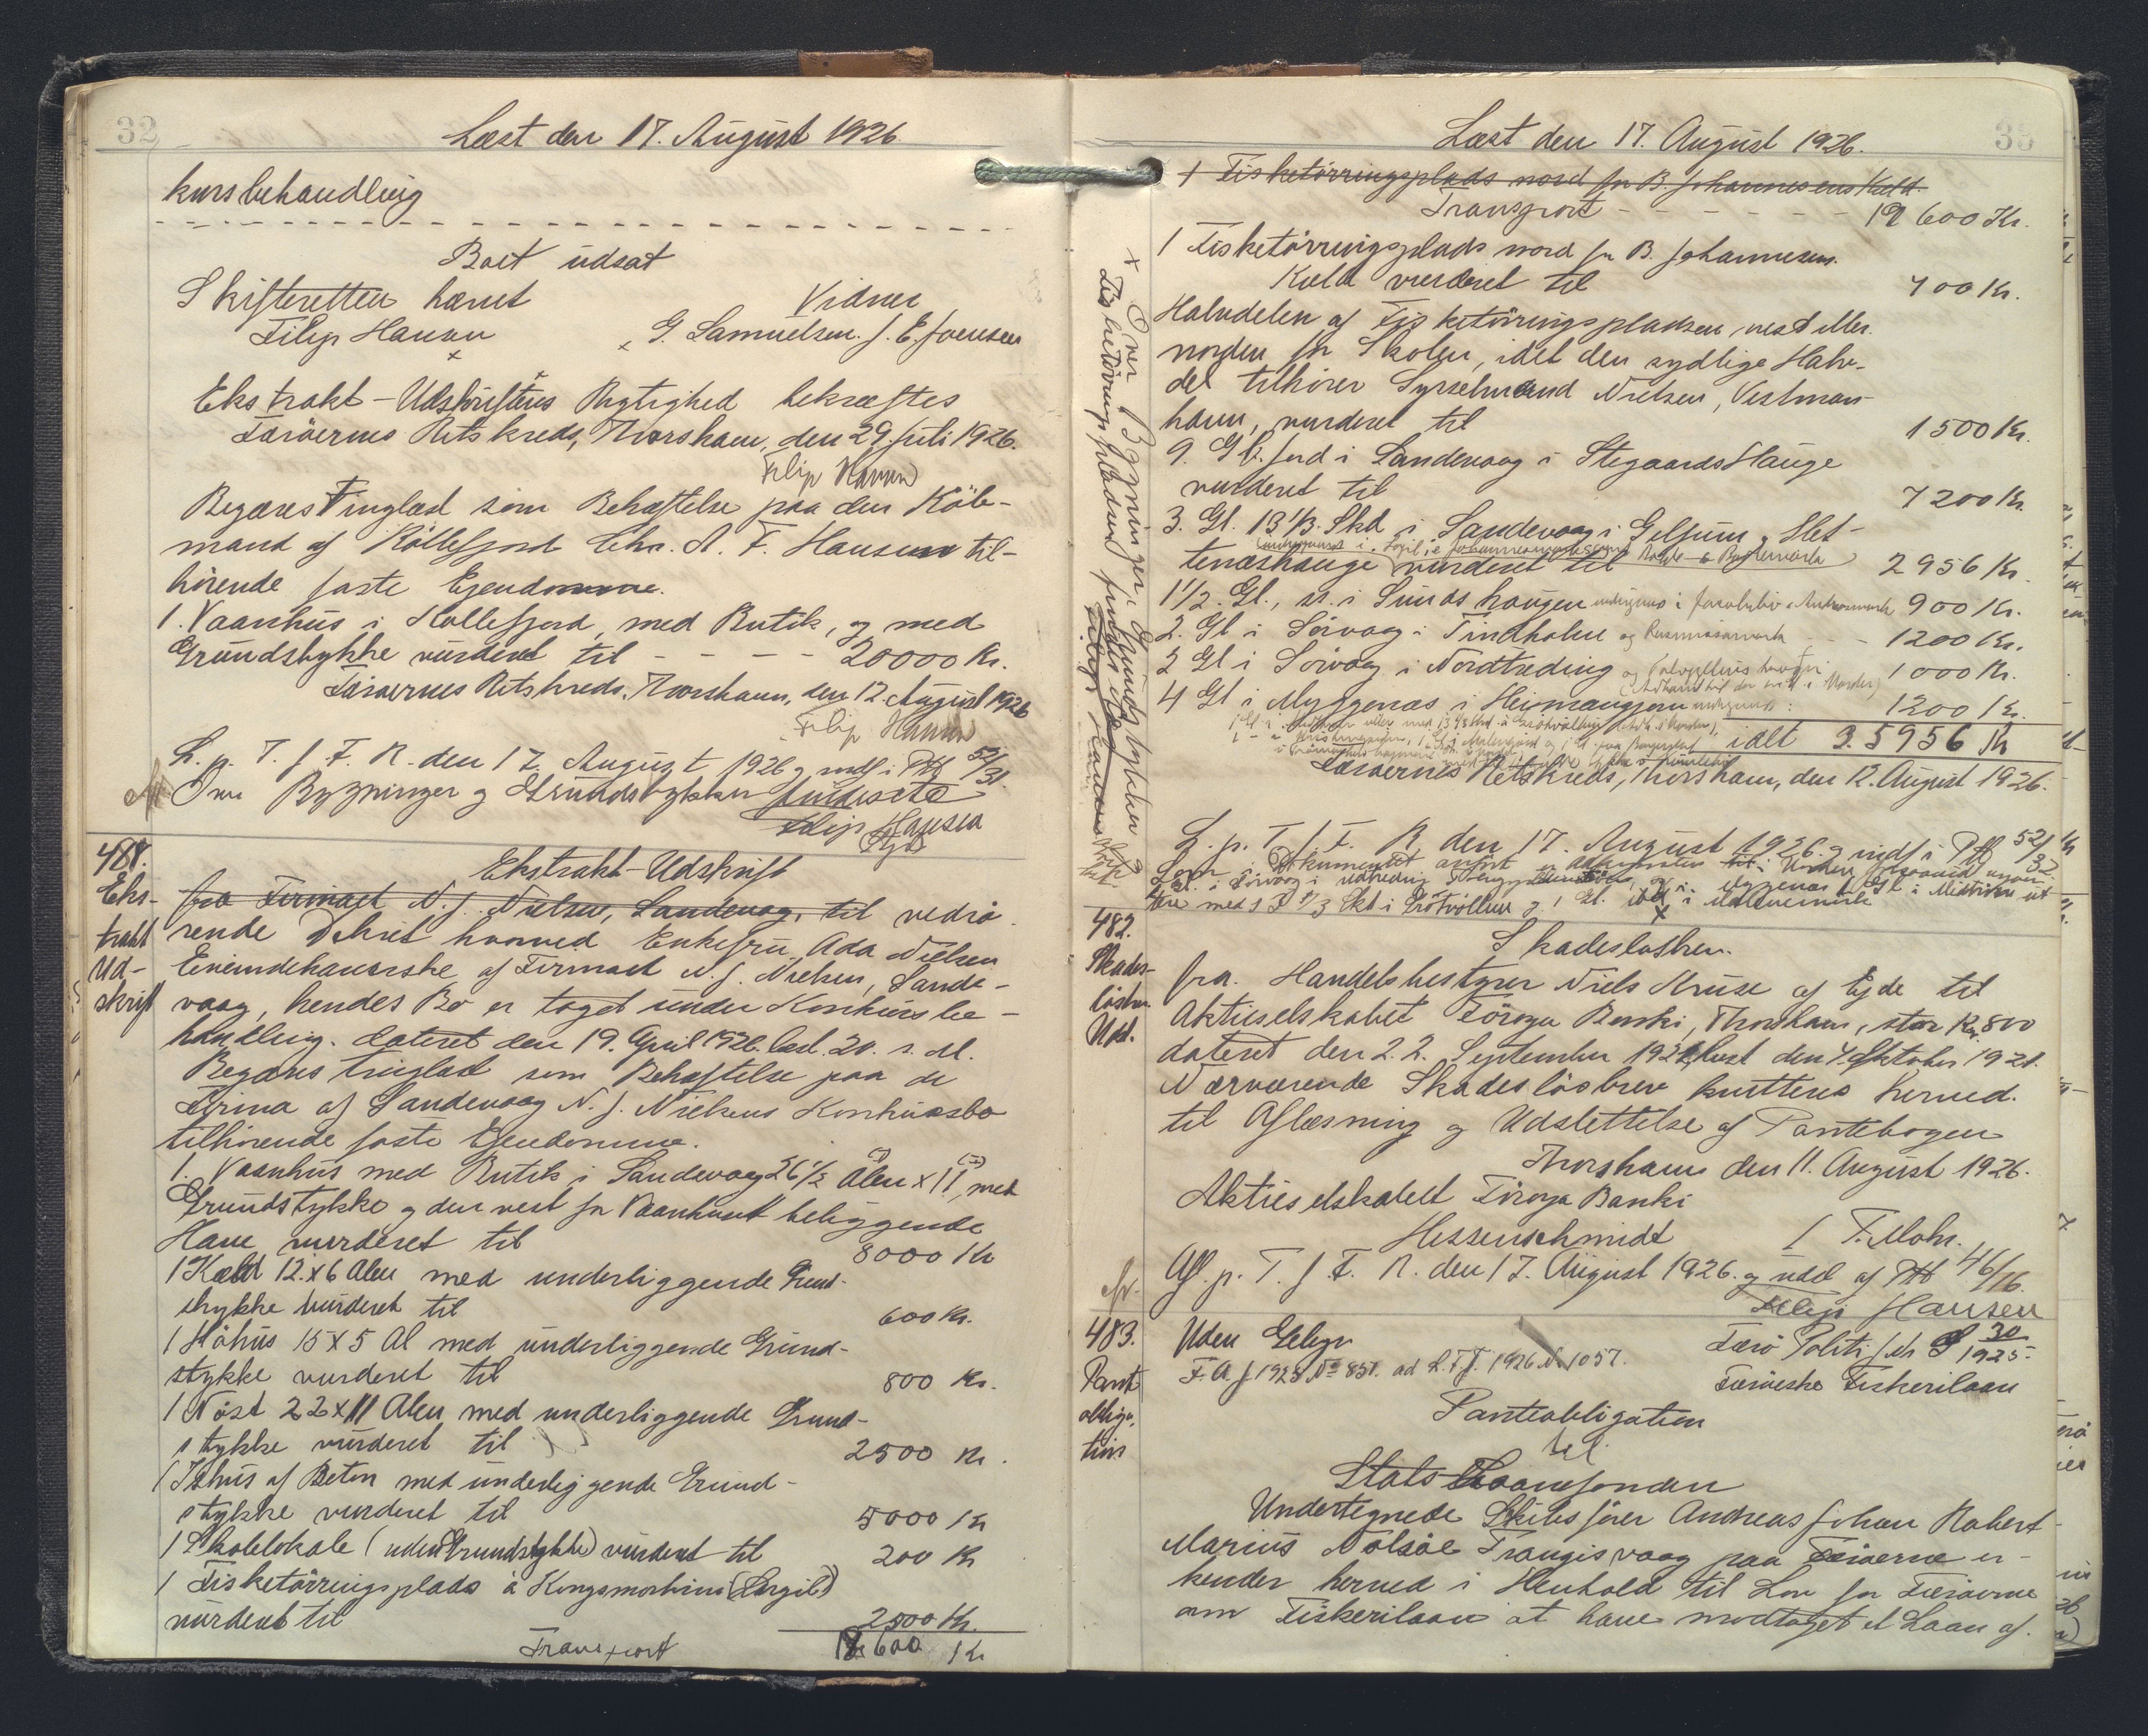 32
Læst den 17. August 1926.
kursbehandling
Boet udsat
Skifteretten hævet
Vidner
Filip Hansen
G. Samuelsen. J. E. Joensen
Ekstrakt-Udskriftens Rigtighed bekræftes
Færøernes Retskreds, Thorshavn, den 29. Juli 1926.
Filip Hansen
Begæres Tinglæst som Behæftelse paa den Köb-
mand af Kollefjord Chr. A. F. Hansen til-
hörende faste Ejendomme.
1. Vaanhús i Kollefjord, med Butik, og med
Grundstykke vurderet til - - - - 20000 Kr.
Færøernes Retskreds, Thorshavn, den 12. August 1926
Filip Hansen
L. p. T. f. F. R. den 17. August 1926 og indf i Ptb 52/31.
Over Bygninger og Grundstykker findes ete
Filip Hansen
481.
Eks-
trakt
Ud-
skrift
Ekstrakt-Udskrift
fra Firmaet N. J. Nielsen, Sandevaag, til vedrö
rende Dekret hvorved Enkefru Ada Nielsen
Eneindehaverske af Firmaet N. J. Nielsen, Sande-
vaag, hendes Bo er taget under Konkursbe-
handling. dateret den 19. April 1926. læst 20. s. M.
Begæres tinglæst som Behæftelse paa de
Firma af Sandevaag N. J. Nielsens Konkursbo
tilhörende faste Ejendomme.
1. Vaanhús med Butik i Sandevaag 26 1/2 Alen x 11, med
Grundstykke og den vest for Vaanhuset beliggende
Have, vurderet til 8000 Kr
1 Kæld 12 x 6 Alen med underliggende Grund-
stykke vurderet til 600 Kr.
1 Höhus 15 x 5 Al med underliggende Grund-
stykke vurderet til 800 Kr.
1 Nöst 22 x 11 Alen med underliggende Grund-
stykke vurderet til 2500 Kr.
1 Ishus af Beton med underliggende Grund-
stykke vurderet til 5000 Kr
1 Skolelokale (uden Grundstykke) vurderet til 200 Kr
1 Fisketörringsplads á Kongsmorkini
vurderet til 2500 Kr.
Transport 19600 Kr
33
Læst den 17. August 1926.
1 Fisketörringsplads nord for B. Johannesens Kæld.
Transport - - - - - - 19600 Kr.
1 Fisketörringsplads nord for B. Johannesens
Kæld vurderet til 700 Kr.
Halvdelen af Fisketörringspladsen, vest eller
norden for Skolen, idet den sydlige Halv-
del tilhörer Sysselmand Nielsen, Vestman-
havn, vurderet til 1500 Kr.
9. Gl. Jord i Sandevaag i Stegaards Hauge
vurderet til 7200 Kr.
3. Gl. 13 1/3. Skd i Sandevaag i Gelfum, Slet-
tenæshauge vurderet til 2956 Kr.
1 1/2. Gl., st. i Sunds haugen 900 Kr.
2. Gl i Sörvaag i Tindholm og Rasmusarmark - - 1200 Kr.
2 Gl i Sörvaag i Nordtreding 1000 Kr.
4 Gl i Myggenæs i Heimangjern 1200 Kr.
ialt 35956 Kr
Færøernes Retskreds, Thorshavn, den 12. August 1926.
L. p. T. f. F. R. den 17. August 1926 og indf i Ptb 52/32.
x Over Bygninger, Grundstykker og
Fisketörringspladsen findes ete
Filip Hansen
482.
Skades-
lösbr.
Uds.
Skadeslösbrev
fra Handelsbestyrer Niels Kruse af Ejde til
Aktieselskabet Föroya Banki, Thorshavn, stor Kr. 800
dateret den 22. September 1921, læst den 4. Oktober 1921.
Nærværende Skadeslösbrev kvitteres herved
til Aflæsning og Udslettelse af Pantebogen
Thorshavn den 11. August 1926.
Aktieselskabet Föroya Banki
Hessenschmidt / F. Mohr.
Afl. p. T. f. F. R. den 17. August 1926. og udsl af Ptb 46/16.
Filip Hansen
483.
Pant
obliga-
tion
Uden Gebyr
F. A. J. 1925 No 851. ad L. F. J. 1926 No 1057.
Færö Politi S 30/1925.
Færöeske Fiskerilaan
Panteobligation
til
Stats Laanefonden
Undertegnede Skibsförer Andreas Johan Robert
Marius Nolsöe Trangisvaag paa Færøerne er-
kender herved i Henhold til Lov for Færøerne
om Fiskerilaan at have modtaget et Laan af